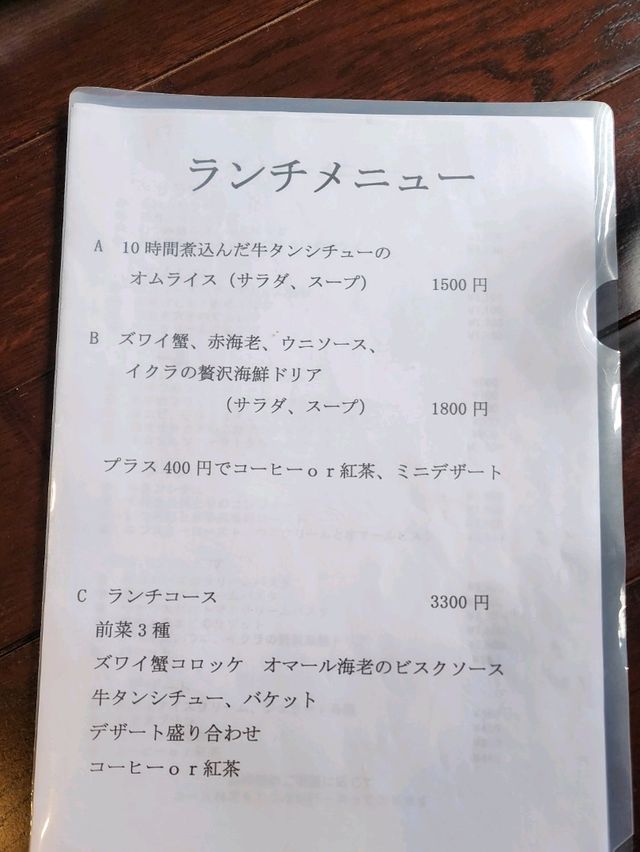 ランチメニュー
A 10時間煮込んだ牛タンシチューの
オムライス（サラダ、スープ） 1500円
B ズワイ蟹、赤海老、ウニソース、
イクラの贅沢海鮮ドリア
（サラダ、スープ） 1800円
プラス400円でコーヒーｏｒ紅茶、ミニデザート
C ランチコース 3300円
前菜3種
ズワイ蟹コロッケ　オマール海老のビスクソース
牛タンシチュー、バケット
デザート盛り合わせ
コーヒーｏｒ紅茶